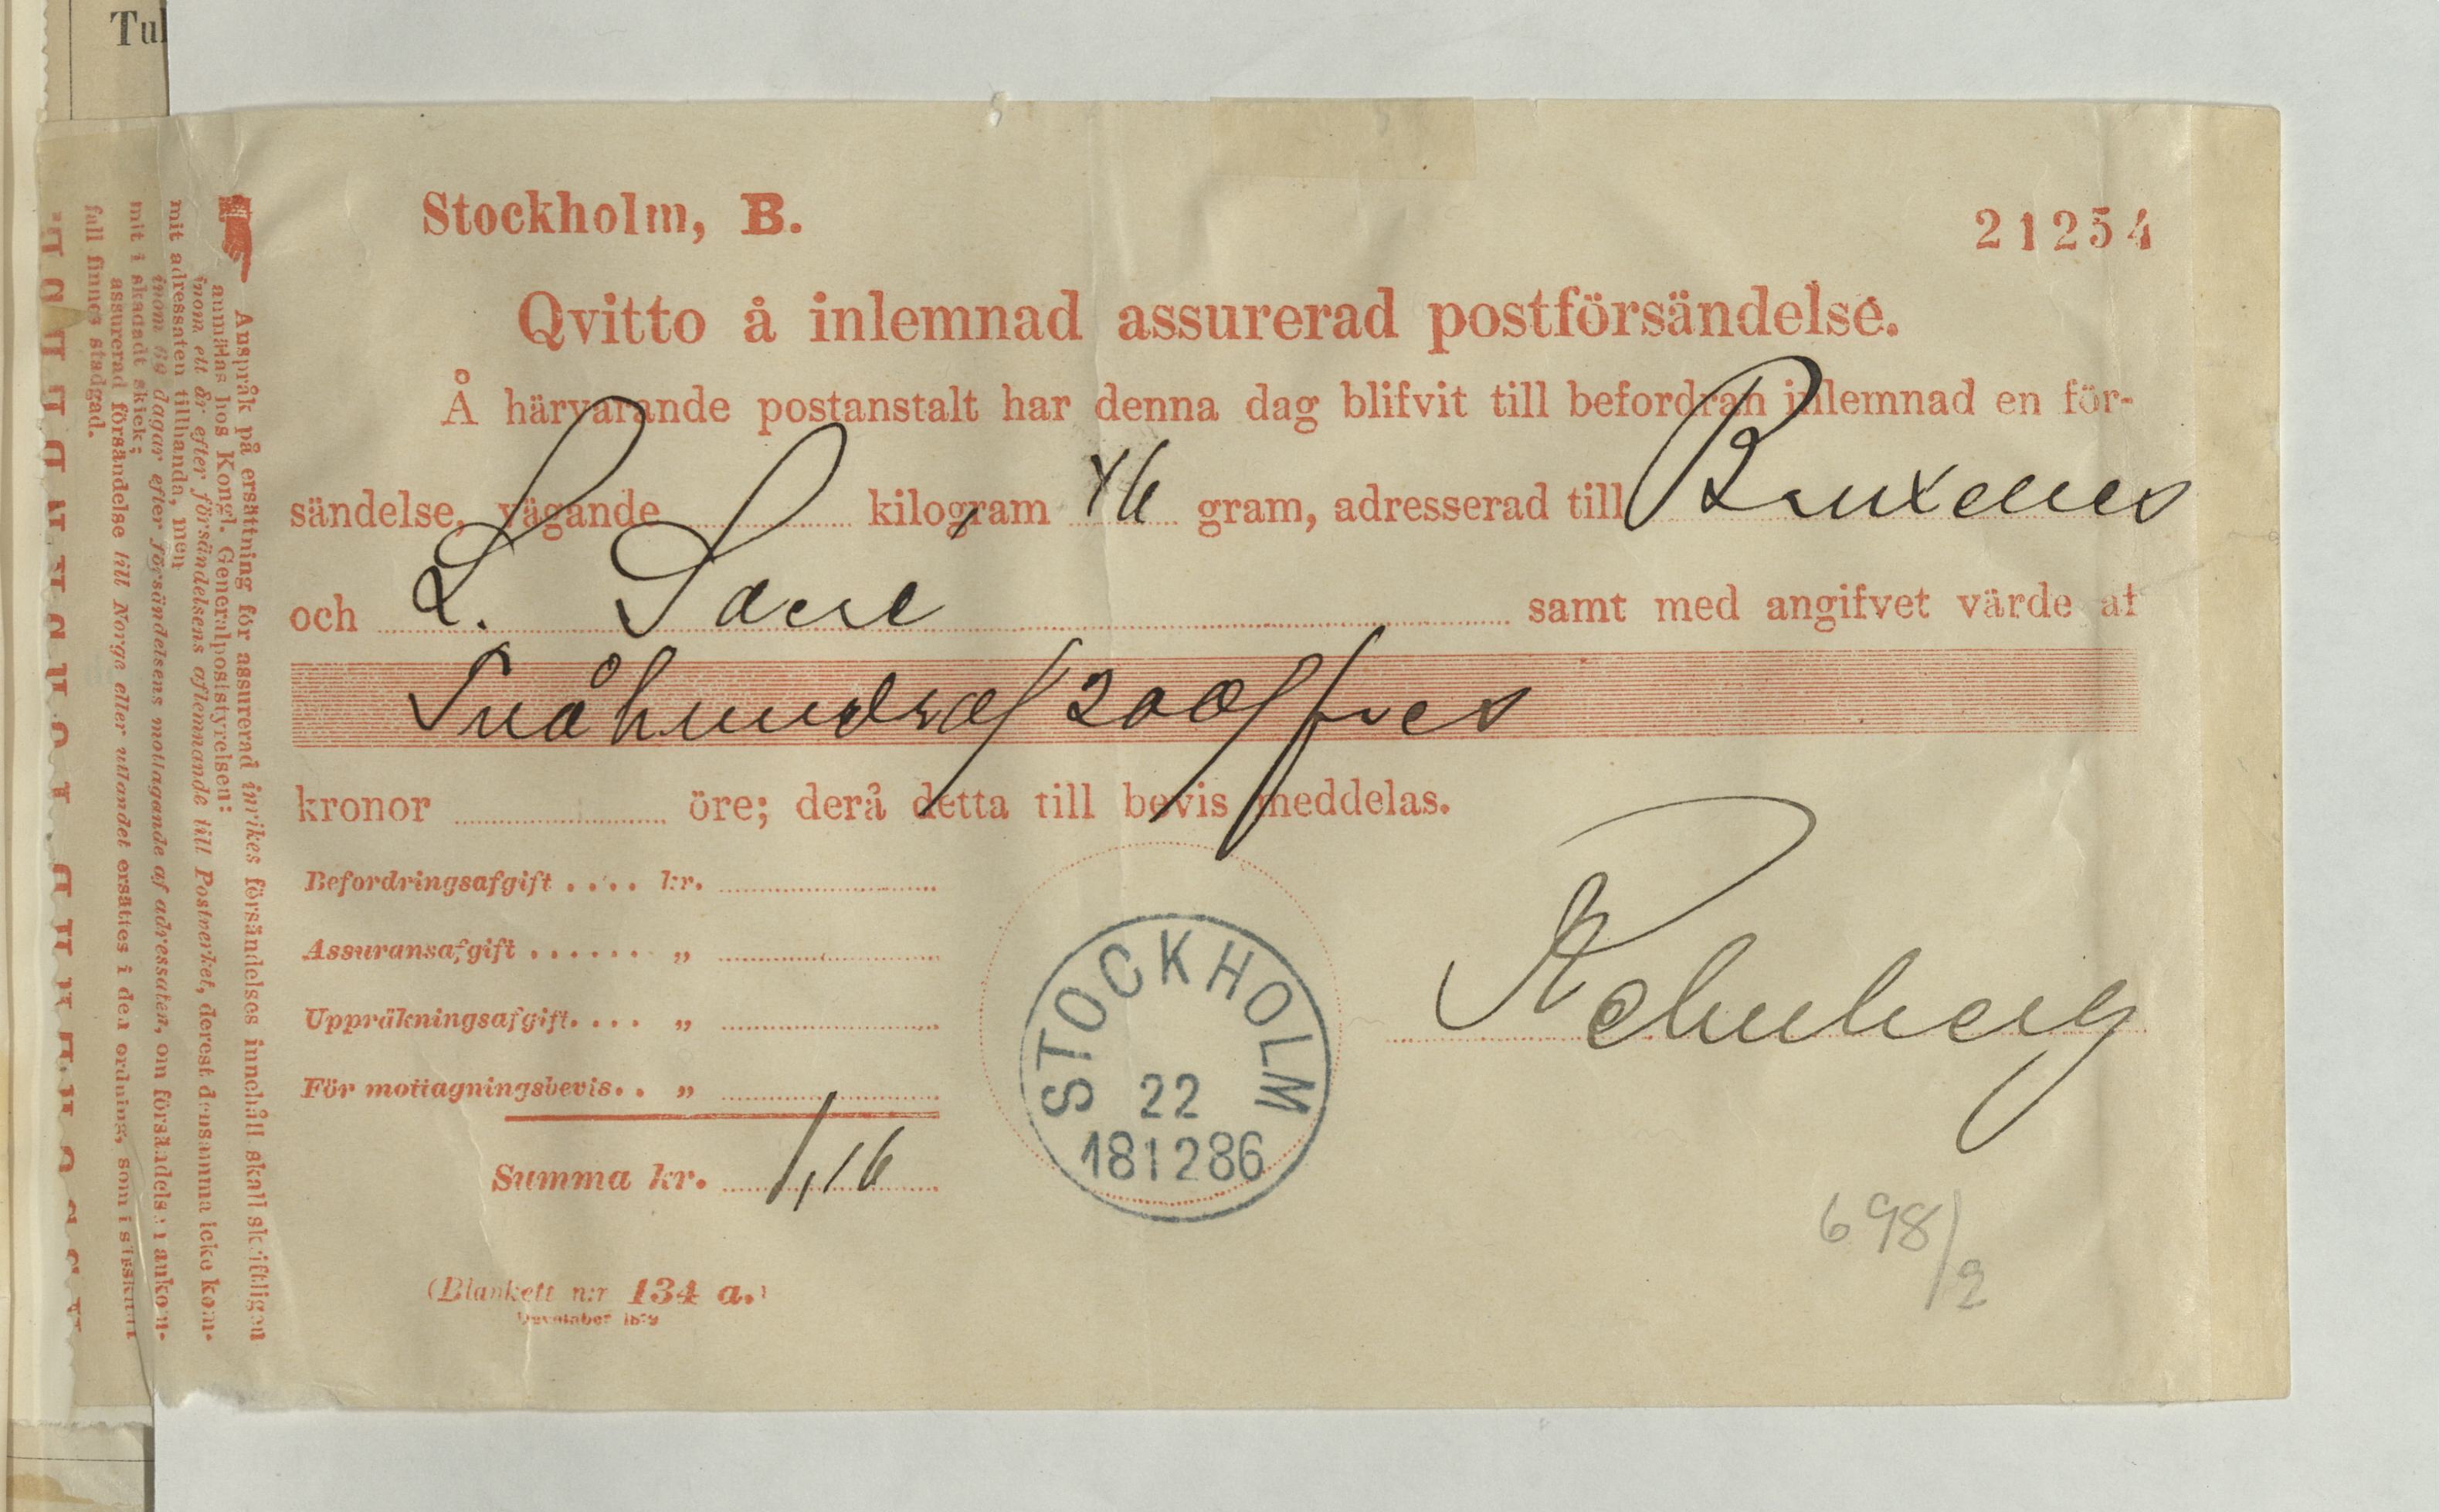 Tul
Stockholm, B.
21254
Qvitto å inlemnad assurerad postförsändelse.
Å härvarande postanstalt har denna dag blifvit till befordran inlemnad en för-
sändelse, vägande kilogram 46 gram, adresserad till Bruxelles
och L. samt med angifvet värde af
Tvåhundra/200/frcs
kronor öre; derå detta till bevis meddelas.
Befordringsafgift .... kr.
Assuransafgift ...... „
Uppräkningsafgift.... „
För mottagningsbevis.. „
Summa kr. 1,16
STOCKHOLM
22
181286
698/2
(Blankett n:r 134 a.)
Anspråk på ersättning för assurerad inrikes försändelses innehåll skall skriftligen
anmälas hos Kongl. Generalpoststyrelsen:
inom ett år efter försändelsens aflemmande till Postverket, derest densamma icke kom-
mit adressaten tillhanda, men
inom dagar efter försändelsens mottagande af adressaten, om försändelsen ankom-
mit i skadadt skick;
assurerad försändelse till Norge eller utlandet ersättes i den ordning, som i särskildt
fall finnes stadgad.